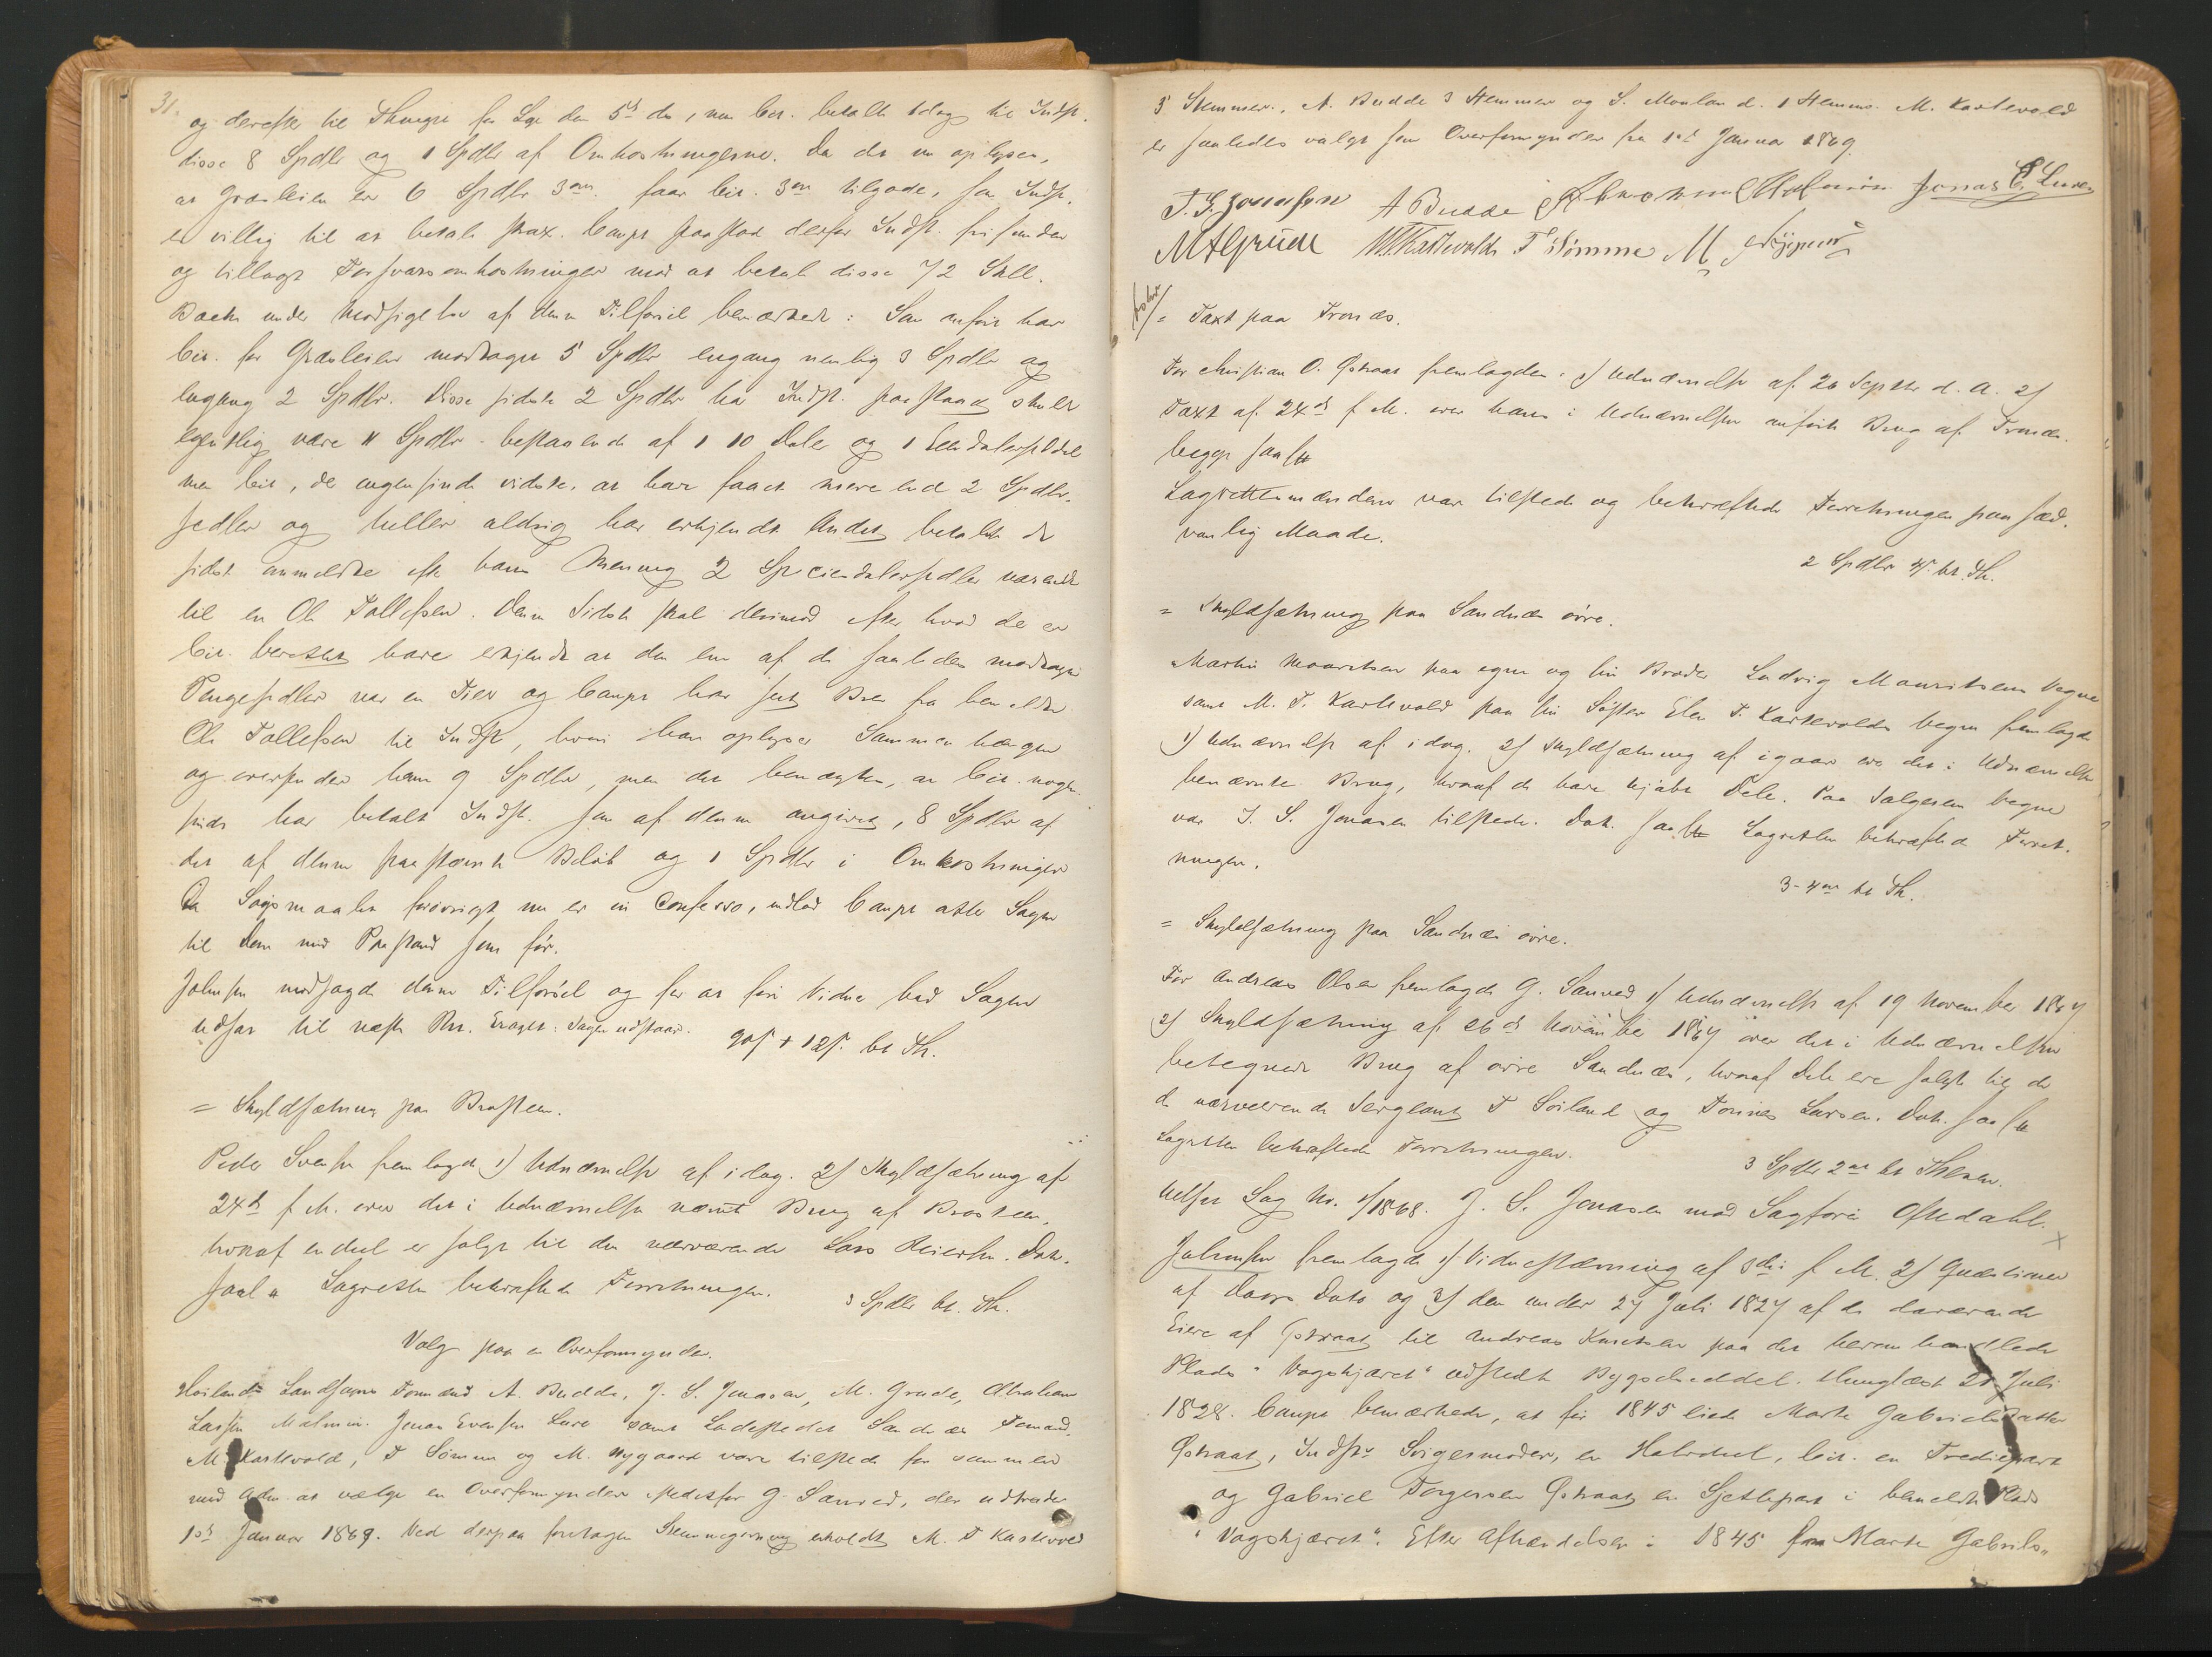 31.
og derefter til Thinget for Lye den 5te ds, men Cit. betalte idag til Indst.
disse 8 Spdlr og 1 Spdlr af Omkostningerne. Da det nu oplyses,
at Græsleien er 6 Spdlr 3ort. faar Cit. 3ort tilgode, som Indst.
er villig til at betale strax. Caupt paastod derfor Indst. frifunden
og tillagt Forsvarsomkostninger mod at betale disse 72 Skill.
under Modsigelse af denne Tilførsel bemærkede: Som anført har
Cit. for Græsleien modtaget 5 Spdlr engang nemlig 3 Spdlr og
engang 2 Spdlr. Disse sidste 2 Spdlr har Indst. paastaaet skulde
egentlig være 11 Spdlr - bestaaende af 1 10 Daler og 1 Eendalerseddel
men Cit, der ingensinde vidste, at have faaet mere end 2 Spdlr.
sedler og heller aldrig har erkjendt Andet, betalte de
sidst anmeldte efter hans Mening 2 Speciedalersedler
til en Ole Tollefsen. Denne Sidste skal derimod efter hvad der er
Cit. berettet have erkjendt at den ene af de saaledes modtagne
Pengesedler var en Tier og Caupt har seet Brev fra bemeldte
Ole Tollefsen til Indst, hvori han oplyser Sammenhængen
og oversender ham 9 Spdlr, men det benægtes, at Cit. nogen
sinde har betalt Indst. som af denne angivet, 8 Spdlr af
det af denne paastævnte Beløb og 1 Spdlr i Omkostninger
Da Søgsmaalet forøvrigt nu er in Confesso, indlod Caupt atter Sagen
til Dom med Paastand som før.
Johnsen modsagde denne Tilførsel og for at føre Vidner bad Sagen
udsat til næste Ret. Eragtet: Sagen udstaaer. 90s + 12s. bt Th.
= Skyldsætning paa Brusteen.
Peder Svensen fremlagde 1) Udnævnelse af idag. 2) Skyldsætning af
24de f. M. over det i Udnævnelsen nævnt Brug af Brosteen,
hvoraf en deel er solgt til den nærværende Lars Reiersen. Dok.
saal. Lagretten bekræftede Forretningen. 3 Spdlr bt. Th.
Valg paa en Overformynder.
Høilands Landsogns Formænd A. Budde, J. S. Jonasen, M. Grude, Abraham
Larsen Malmin. Jonas Evensen Lure samt Ladestedet Sandnæs Formænd
M. Kastevold, T Sømme og M. Nygaard vare tilstede for sammen
med Adm. at vælge en Overformynder istedetfor G. Sanved, der udtræder
1ste Januar 1869. Ved derpaa foretagen Stemmegivning erholdt M. T Kastevold
5 Stemmer, A. Budde 3 Stemmer og S. Mouland. 1 Stemme. M. Kastevold
er saaledes valgt som Overformynder fra 1ste Januar 1869.
A Budde Jonas E Luren
M A Grude M T Kastevold T Sømme M Nygaard
= Taxt paa Tronæs.
For Christian O. Gjeraat fremlagdes: 1) Udnævnelse af 26 Septbr d. A. 2)
Taxt af 24de f. M. over hans i Udnævnelsen anførte Brug af Tronæs.
begge saal.
Lagrettemændene var tilstede og bekræftede Forretningen paa sæd.
vanlig Maade.
2 Spdlr 4s. bt. Th.
= Skyldsætning paa Sandnæs øvre.
Martin Mauritsen paa egne og sin Broder Ludvig Mauritsens Vegne
samt M. T. Kastevold paa sin Søster Elen T. Kastevolds Vegne fremlagde
1) Udnævnelse af idag. 2) Skyldsætning af igaar over det i Udnævnelsen
benævnte Brug, hvoraf de have kjøbt Dele. Paa Sælgerens Vegne
var J. S. Jonasen tilstede. Dok. saal. Lagretten bekræftede Forret.
ningen.
3-4ort bt Th.
= Skyldsætning paa Sandnæs øvre.
For Andreas Olsen fremlagde G. Sanved 1) Udnævnelse af 19 November 1867
2) Skyldsætning af 26de November 1867 over det i Udnævnelsen
betegnede Brug af øvre Sandnæs, hvoraf Dele ere solgte til de
de nærværende Sergeant T Soiland og Tønnes Larsen. Dok. saal.
Lagretten bekræftede Forretningen. 3 Spdlr 2ort bt Theskr.
Udsat Sag No. 1/1868. J. S. Jonasen mod Sagfører Oftedahl.
Johnsen fremlagde 1) Vidnestævning af 8de f. M. 2) Quæstioner
af Dags Dato og 3) den under 27 Juli 1827 af de daværende
Eiere af Gjeraat til Andreas Knudsen paa det heromhandlede
Plads "Vagskjæret" udstedte Bygselseddel. thinglæst 21 Juli
1828. Caupt bemærkede, at før 1845 eiede Marte Gabrielsdatter
Gjeraat, Indst's Svigermoder, en Halvdeel, Cit. en Trediepart
og Gabriel Torgersen Gjeraat en Sjettepart i bemeldte Plads
"Vagskjæret". Efter Afhændelsen i 1845 fra Marte Gabriels=